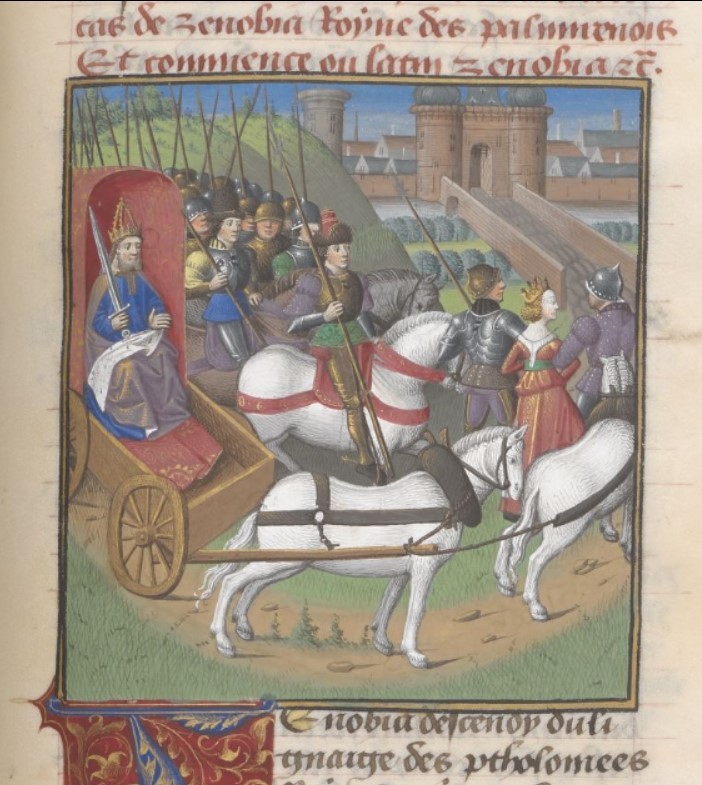 cas de zenobia Royne des palmurenois
Et commence ou latin zenobia ⁊c̃.
Enobia descendy du li
gnaige des ptholomees